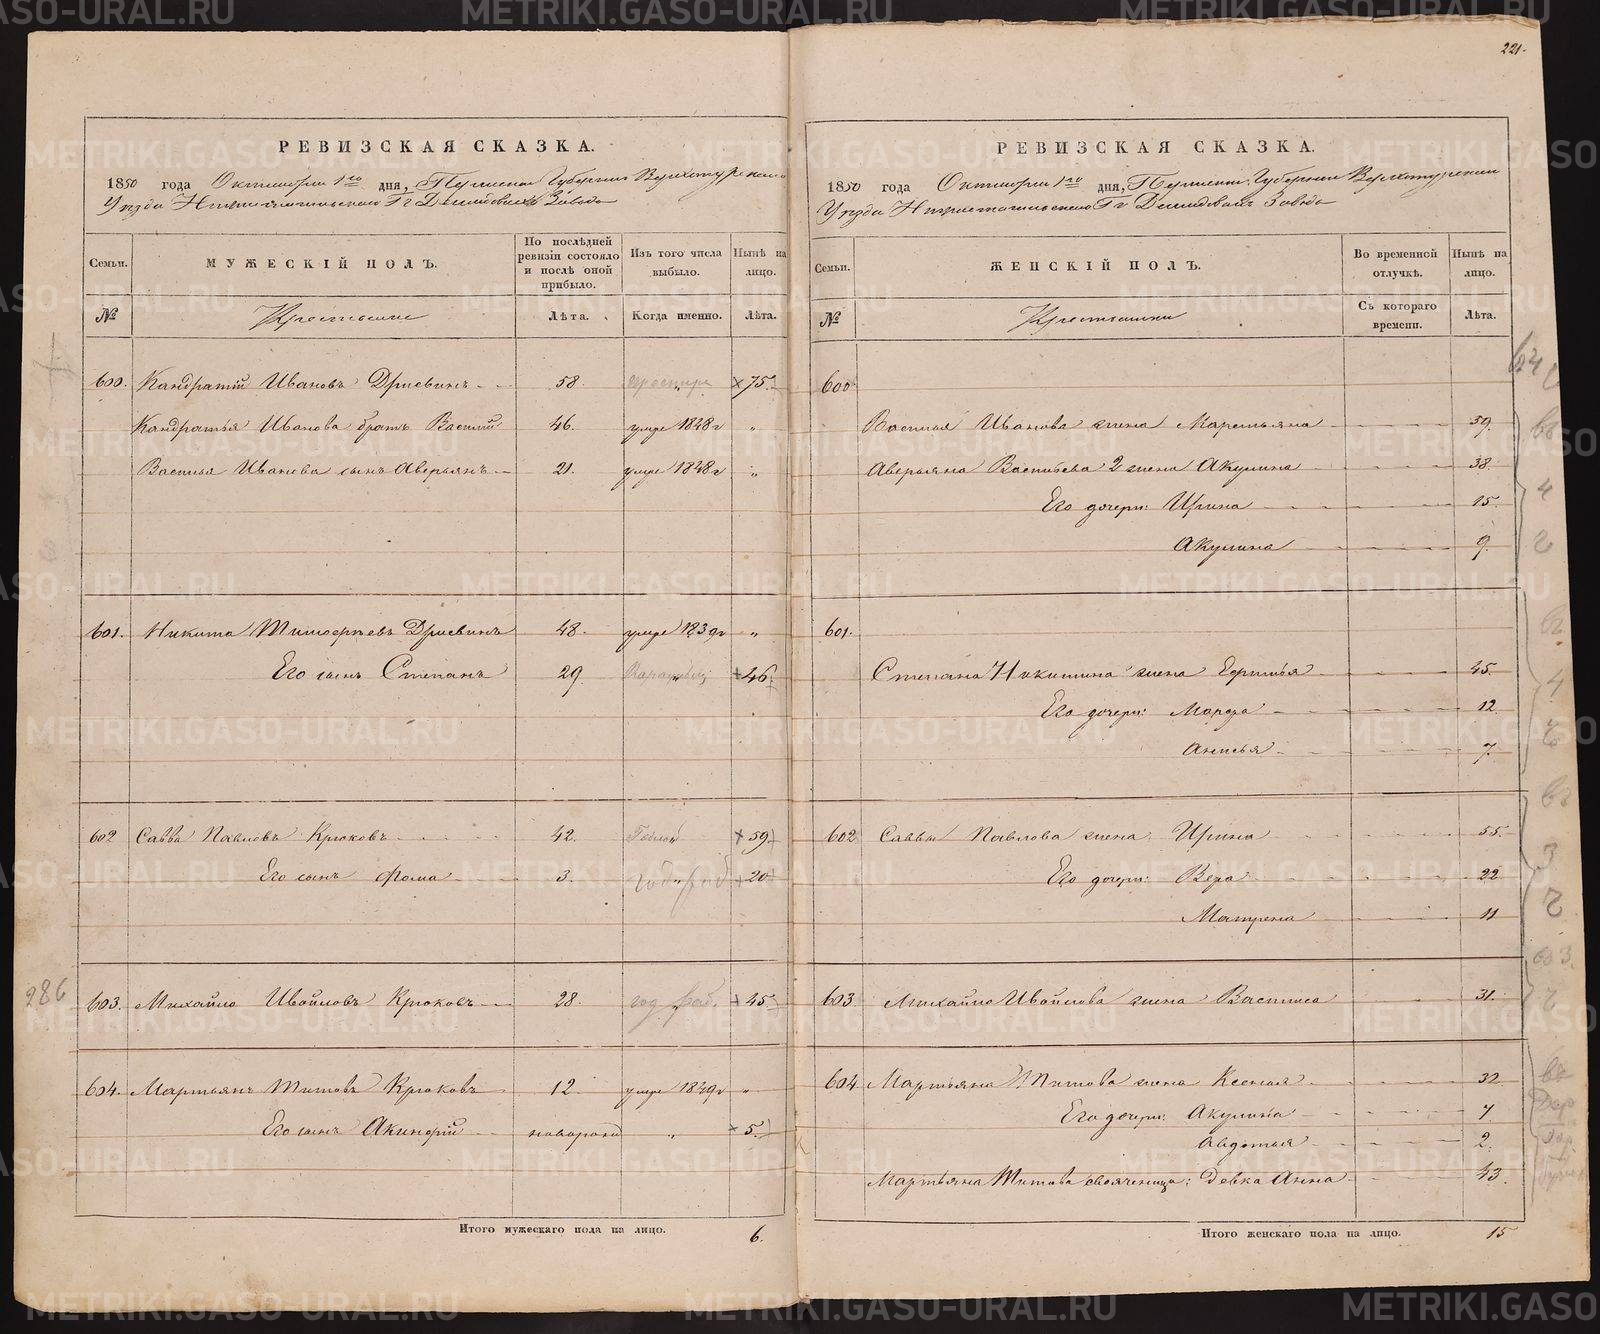 221.
РЕВИЗСКАЯ СКАЗКА.
1850 года Октября 1го дня, Пермской Губернии Верхотурскаго
Уезда Нижнетагильскаго Гг Демидовыхъ Завода
Семьи. МУЖЕСКІЙ ПОЛЪ. По последней ревизіи состояло и послѣ оной прибыло. Изъ того числа выбыло. Нынѣ на лицо.
№ Крестьяне Лѣта. Когда именно. Лѣта.
600. Кандратій Ивановъ 58. 75.
Кандратья Иванова братъ Василій 46. умре 1848г "
Василья Иванова сынъ Аверьянъ 21. умре 1848г "
601. Никита Тимофеевъ 48. умре 1839г "
Его сынъ Степанъ 29. 46.
602 Савва Павловъ Крюковъ 42. 59
Его сынъ Фома 3. 20
286
603. Михайло Крюковъ 28. год раб. 45
604. Мартьянъ Титовъ Крюковъ 12 умре 1849г "
Его сынъ Акинфій новорожд " 5.
Итого мужескаго пола на лицо. 6.
РЕВИЗСКАЯ СКАЗКА.
1850 года Октября 1го дня, Пермской Губернии Верхотурскаго
Уезда Нижнетагильскаго Гг Демидовыхъ Завода
Семьи. ЖЕНСКІЙ ПОЛЪ. Во временной отлучкѣ. Нынѣ на лицо.
№ Крестьянки Съ котораго времени. Лѣта.
600
Василья Иванова жена Маремьяна 59.
Аверьяна Васильева 2 жена Акулина 38.
Его дочери: Ирина 15.
Акулина 9.
601.
Степана Никитина жена 45.
Его дочери: Марфа 12
Анисья 7.
602 Саввы Павлова жена Ирина 55.
Его дочери: Вера 22
Матрена 11
603 Михайло жена Василиса 31.
604 Мартьяна Титова жена Ксенья 32
Его дочери: Акулина 7
Авдотья 2.
Мартьяна Титова свояченица: девка Анна 43.
Итого женскаго пола на лицо. 15
METRIKI.GASO-URAL.RU